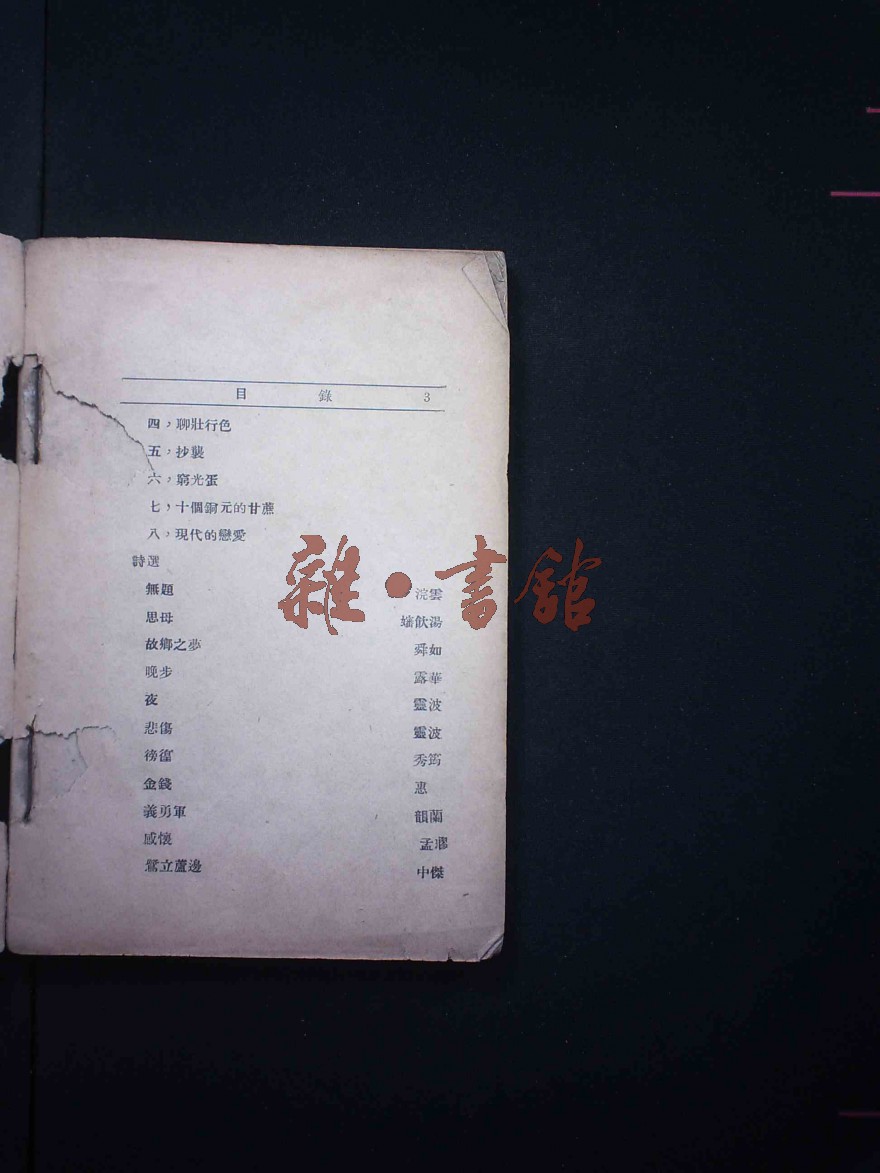 目錄 3
四，聊壯行色
五，抄襲
六，窮光蛋
七，十個銅元的甘蔗
八，現代的戀愛
詩選
無題 浣雲
思母 飲湯
故鄉之夢 舜如
晚步 露華
夜 靈波
悲傷 靈波
徬徨 秀筠
金錢 惠
義勇軍 韻蘭
感懷 孟璆
鷺立蘆邊 中傑
雜·書館